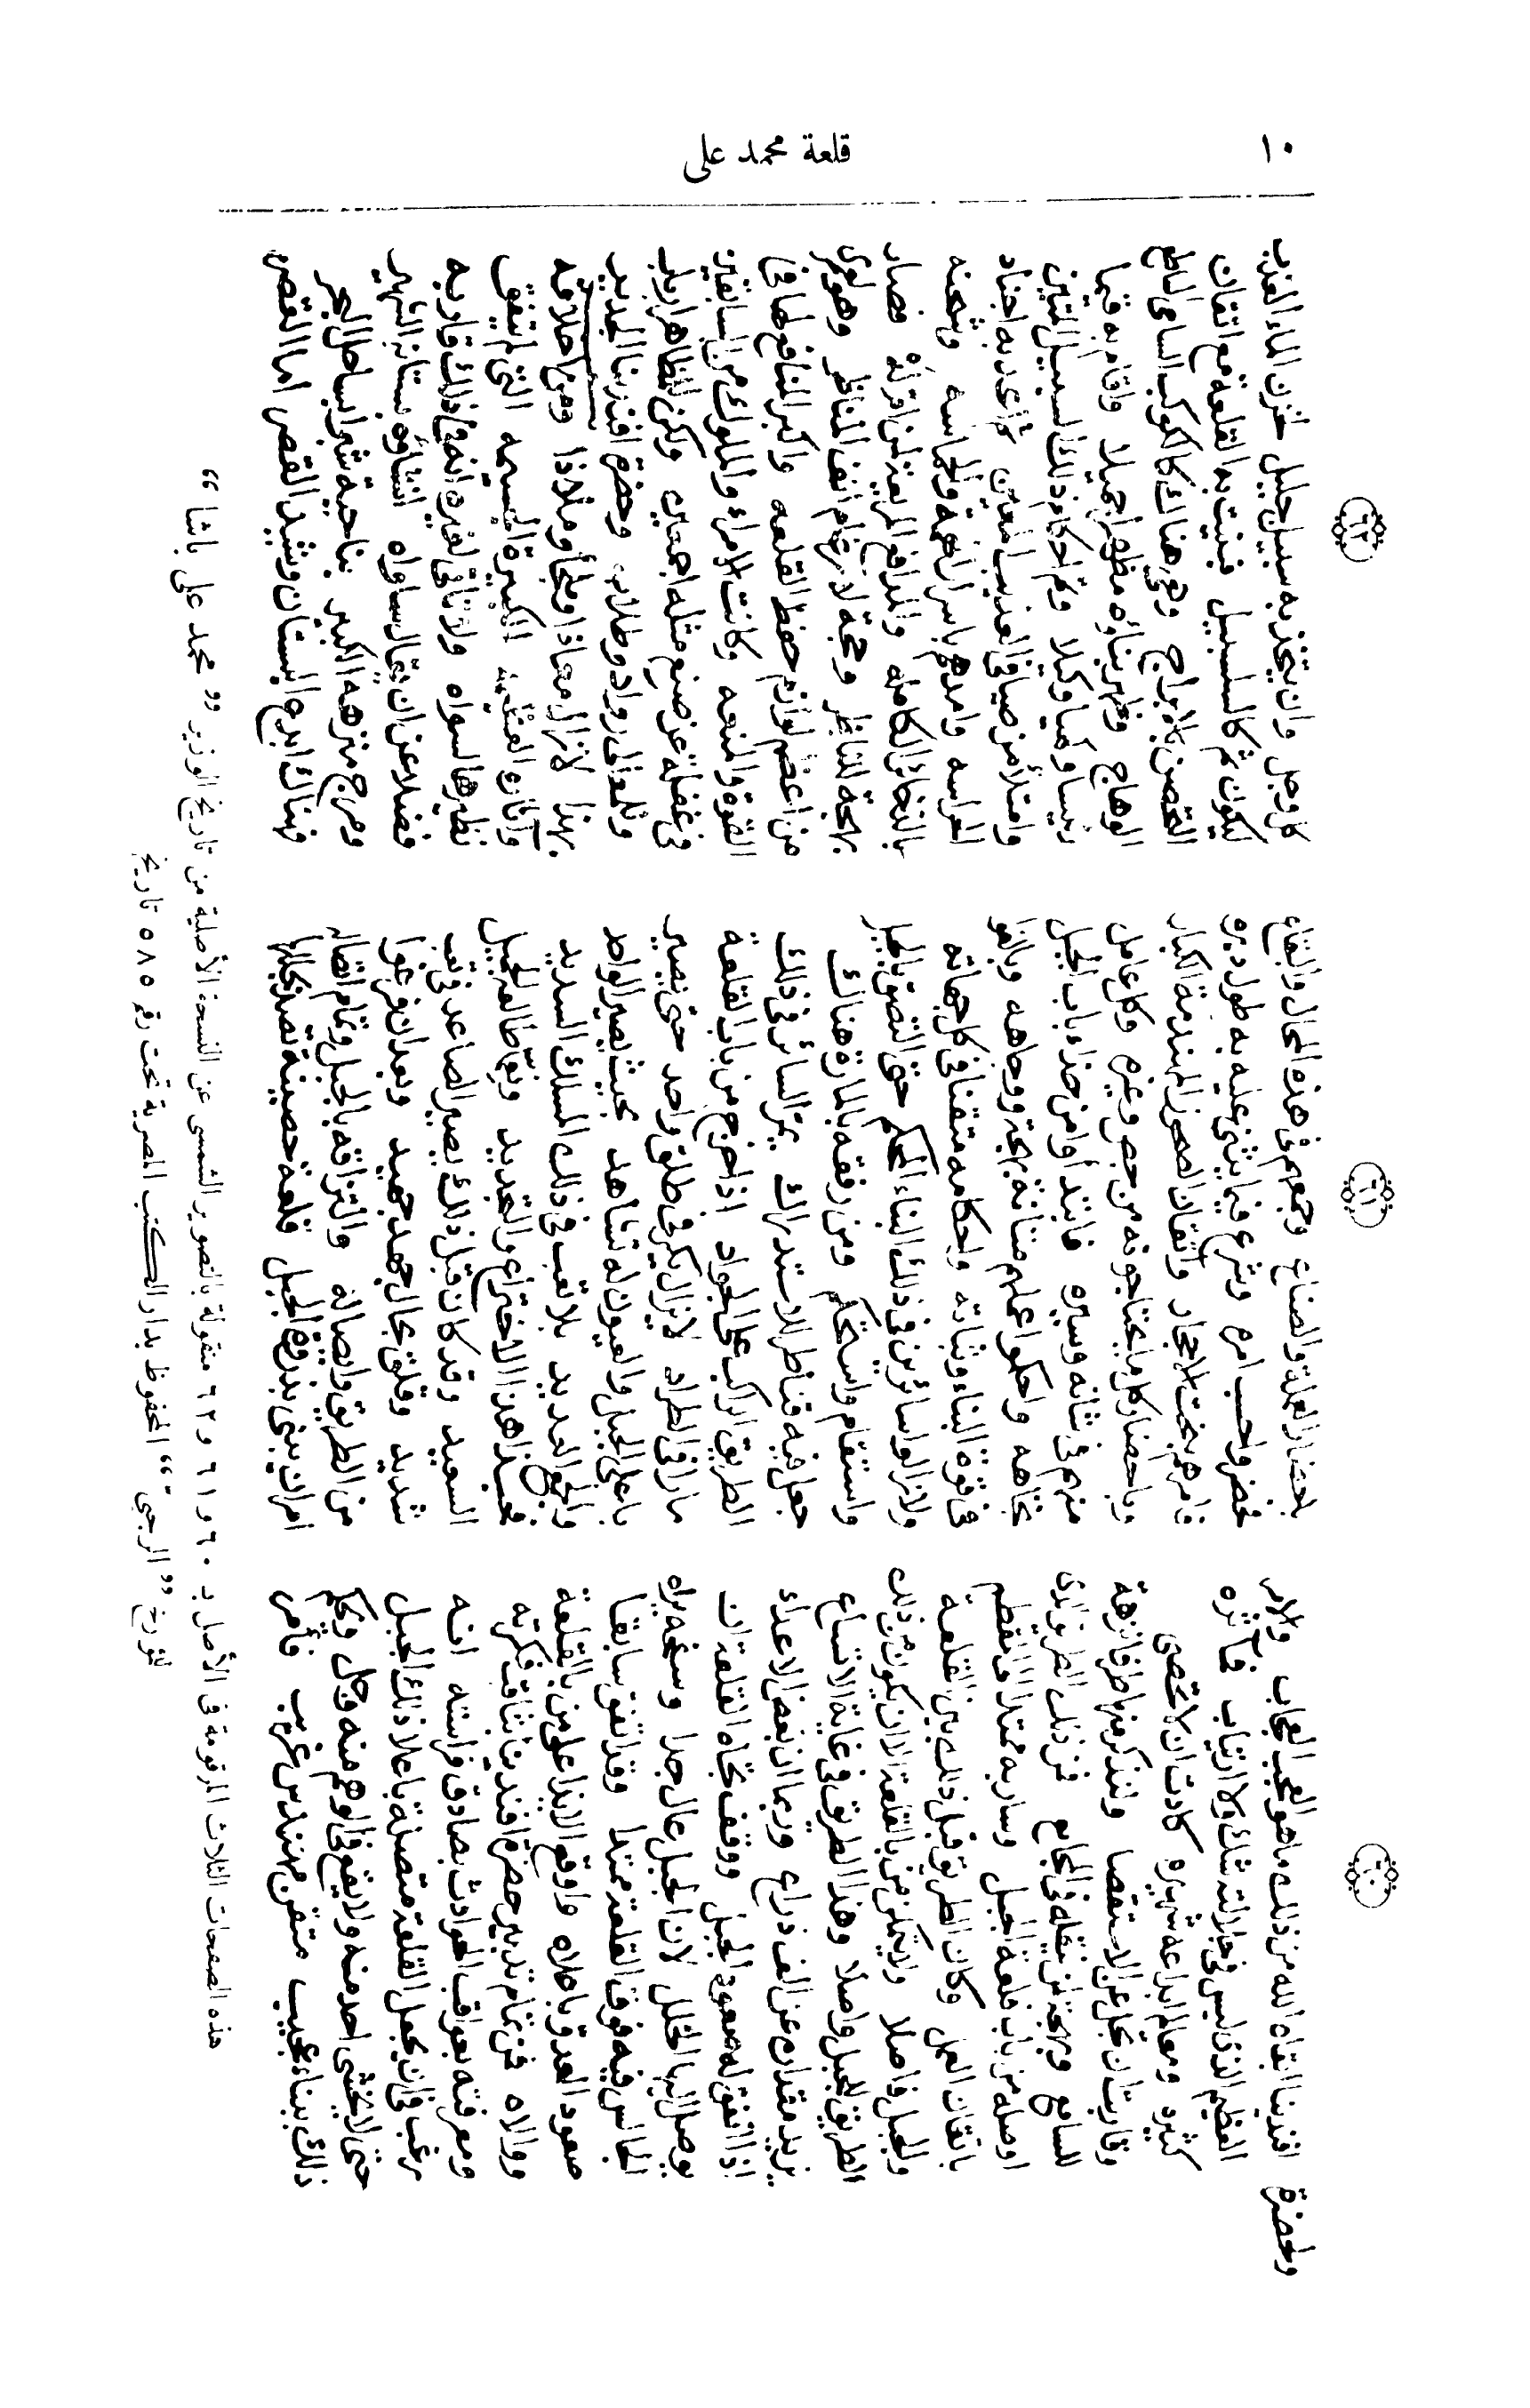 ١٠
قلعة محمد على
٦٠
ولحضرة افندينا ابقاه الله من ذلك ما هو العجب العجاب ولامر
العظيم الذى ليس فى جزالته شك ولا ارتياب فمآثره
كثيره ومعالم ابداعه شهيره كادت ان لا تحصى
وقاربت ان تجل عن الاستقصا ولنذكر منها طرفا نزهة
للسامع وبهجة لمن نقله فى المجامع فمن ذلك الطريق الذى
اوصله من باب قلعة الجبل وسار به ممتدا الى المقطم
باتقان العمل وكان الطريق قبل ذلك بين القلعة
والجبل فاصلا ولا يمكن من بالقلعة الا ان يكون من ذلك
الطريق للجبل واصلا وهذا الطريق فى غاية الاتساع
يزيد مقداره عن الف ذراع وربما ان بعض الاعداء
اذا اتفق له صعود الجبل ووقف تجاه القلعة ان
يوصل اليها الخلل لان الجبل عال جدا وسفحه يراه
الجالس فيه فوق القلعة ممتدا وقد اتفق سابقا
صعود العدو باعلاه واوقع الايذا على من بالقلعة
ووالاه فمن تمام تدبير حضرة افندينا ثاقب فكرته
ومعرفته بعواقب الحوادث بصادق فراسته انه
رغب فى ان يجعل القلعة متصلة باعلا ذلك الجبل
حتى لا يخشى احد منه ولا يقع فى الوهم منه وجل وتحكم
ذلك بناء عجيب متقن مهندس غريب فأمر
٦١
باحضار العملة والصناع وجمعهم فى هذه المحال والبقاع
فحضروا حسب امره وشرع فيما يثنى عليه به طول دهره
فامرهم بنحت الاحجار واتقان الصخور المهندمة الكبار
وباحضار كل ما يحتاجونه من جص وغيره وكل عامل
منهم فى شأنه وسيره فابتدأوا من حذاء باب الجبل
تجاهه واحكموا عملهم متانة بهجته ووجاهه وبالغوا
فى قوة البناء وثباته واحكامه متقنا فى كل جهاته
ولا زالوا سائرين فى ذلك البناء المحكم حتى التصق بالجبل
واستقام واستحكم ومن رفقه بالمارة هناك
جعل فيه قناطر للاستدراك يمر السائر فى ذلك
الطريق الراكب على الجواد اذا خرج من باب القلعة
مارا فى الطراد لا يزال يكر فى طلق واحد حتى يصير
باعلى الجبل والعيون له تشاهد بحيث يصير الواحد
والجمع العديد بلا تعب فى ذلك المسلك السديد
فحبذا هذا الاختراع والتجديد ونعم طالعه الجميل
السعيد وقد كان قبل ذلك يصير الصاعد فى تعب
شديد وقلق بحال جهد جهيد وبعد ان فرغوا
من الطريق وايصاله والتزاقه بالجبل وتمام اتصاله
امر ان يبنى بذروة الجبل قلعة حصينة تصد بجلالها
٦٢
كل وجل وان يتخذ به سبيل جليل خزن الماء العذب
ليكون ثم كالسلسبيل فبنيت به القلعة مع اتقان
التحصن بالابراج وهى هناك كالكوكب السامى الساطع
الوهاج وظهر بناؤه منظرا جميلا واقام به قيما
رئيسا وكهيا وكيلا وتم احكام ذلك السبيل المتين
وامتلأ من صيافى العذب المعين واعد به اجناد
الحراسه وامدهم باسرار الهمة والحماسه وشحنه
بالذخائر الكامله والمدافع المريعة لمن امّ له فصار
بهجة للناظر وحجة لارغام انف المناظر وهو لعمرى
من اعظم لوازم حفظ القلعه واكبر المنافع لها فى
القوة والمنعه وكانت الامراء والملوك من السابقين
فى غفلة عن صنع مثله اجمعين ولكن للمظاهر ارباب
وللمعالى رواد وطلاب وحضرة افندينا الجديد
بهذا لا زال معاذا وملجأ وملاذا ومن احلافه
وآثاره العظيمه الكبيرة الجسيمه التى لم يتفق
نظيرها لسواه ولا تأتى لغيره انه فى ذلك قاربه
فضلا عن ان يقال ساواه انشاؤه بستانه الشهير
ومرج متنزهه الكبير بناحية شبرا بساحل البحر
فهناك ابدع البستان وشيد القصر اما القصر
هذه الصفحات الثلاث المرقومة فى الأصل بـ ٦٠ و ٦١ و ٦٢ منقولة بالتصوير الشمسى عن النسخة الأصلية من تاريخ الوزير ” محمد على باشا “
للمؤرخ ” الرجبى “ المحفوظ بدار الكتب المصرية تحت رقم ٥٨٥ تاريخ